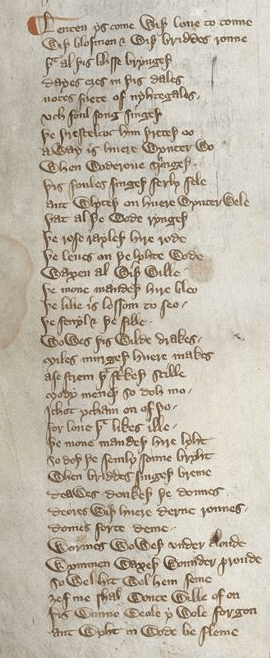 Lenten ys come wiþ loue to toune
wiþ blosmen & wiþ briddes roune
þt al þis blisse bryngeþ
dayes eȝes in þis dales
notes suete of nyhtegales
vch foul song singeþ
þe þrestelcoc him þreteþ oo
away is huere wynter wo
when woderoue springeþ
þis foules singeþ ferly fele
ant wlyteþ on huere wynter wele
þat al þe wode ryngeþ
þe rose rayleþ hire rode
þe leues on þe lyhte wode
waxen al wiþ wille
þe mone mandeþ hire bleo
þe lilie is lossom to seo
þe fenyl & þe fille
wowes þis wilde drakes
miles murgeþ huere makes
ase strem þt strikeþ stille
mody meneþ so doh mo
ichot ycham on of þo
for loue þt likes ille
þe mone mandeþ hire lyht
so doþ þe semly sonne bryht
when briddes singeþ breme
deawes donkeþ þe dounes
deores wiþ huere derne rounes
domes forte deme
wormes woweþ vnder cloude
wymmen waxeþ wounder proude
so wel hit wol hem seme
ȝef me shal wonte wille of on
þis wunne weole y wole forgon
ant wyht in wode be fleme